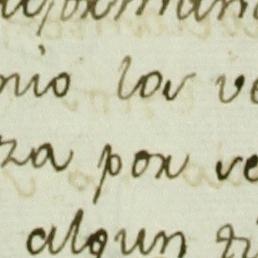 nio los ve
za por ve
algun ti